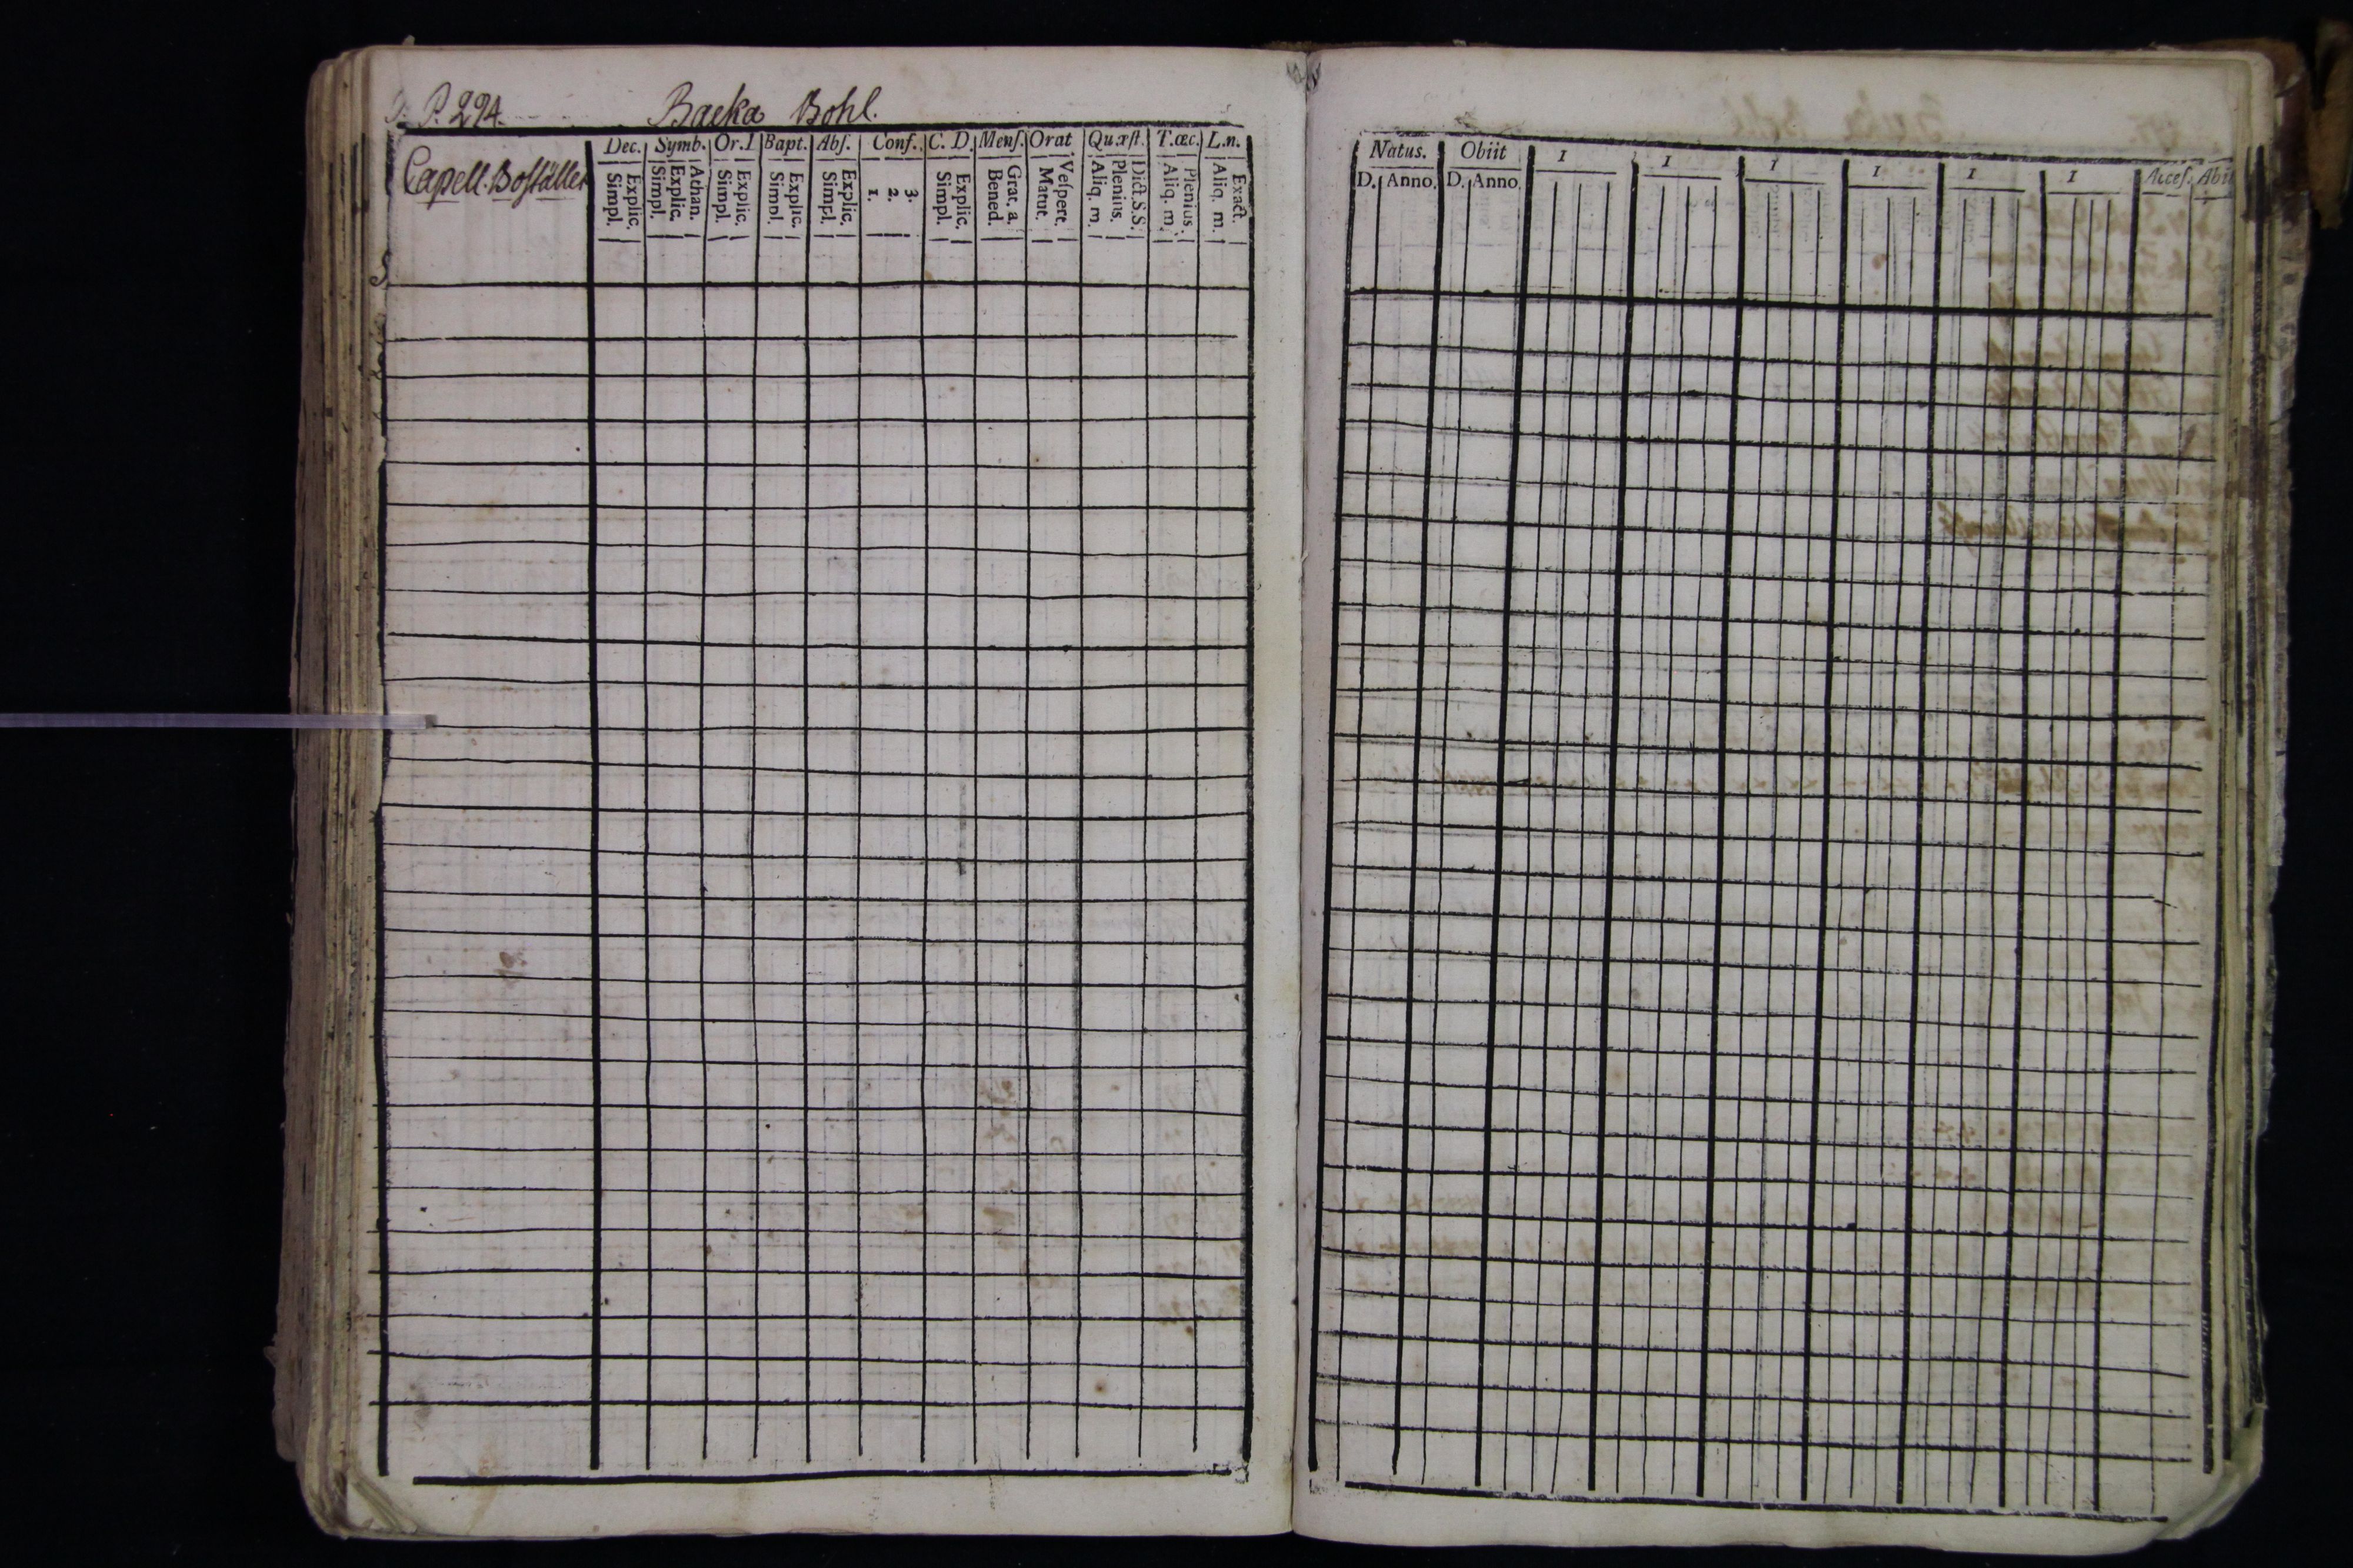 P. 294. Backa Bohl.
Dec. Symb. Or. I Bapt. Abſ. Conf. C. D. Menſ. Orat Quæſt. T. œc. L. n.
Capell. Boſtället
Simpl. Explic. Simpl. Explic. Athan. Simpl. Explic. Simpl. Explic. Simpl. Explic. 1. 2. 3. Simpl. Explic. Bened. Grat. a. Matut. Veſpert. Aliq. m. Plenius. Dict. S. S. Aliq. m. Plenius. Aliq. m. Exact.
Natus. Obiit 1 1 1 1 1 1 Acceſ. Abii
D. Anno. D. Anno.